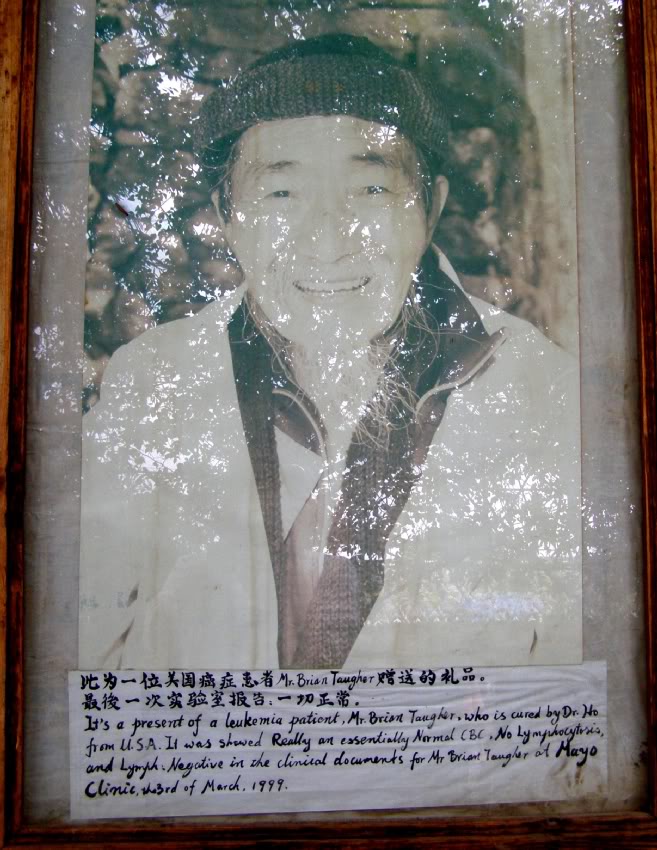 此为一位美国癌症患者 Mr. Brian Taugher 赠送的礼品。
最後一次实验室报告：一切正常.
It's a present of a leukemia patient, Mr. Brian Taugher, who is cured by Dr. Ho
from U.S.A. It was showed Really an essentially Normal CBC, No Lymphocytosis,
and Lymph: Negative in the clinical documents for Mr Brian Taugher at Mayo
Clinic, the 3rd of March, 1999.